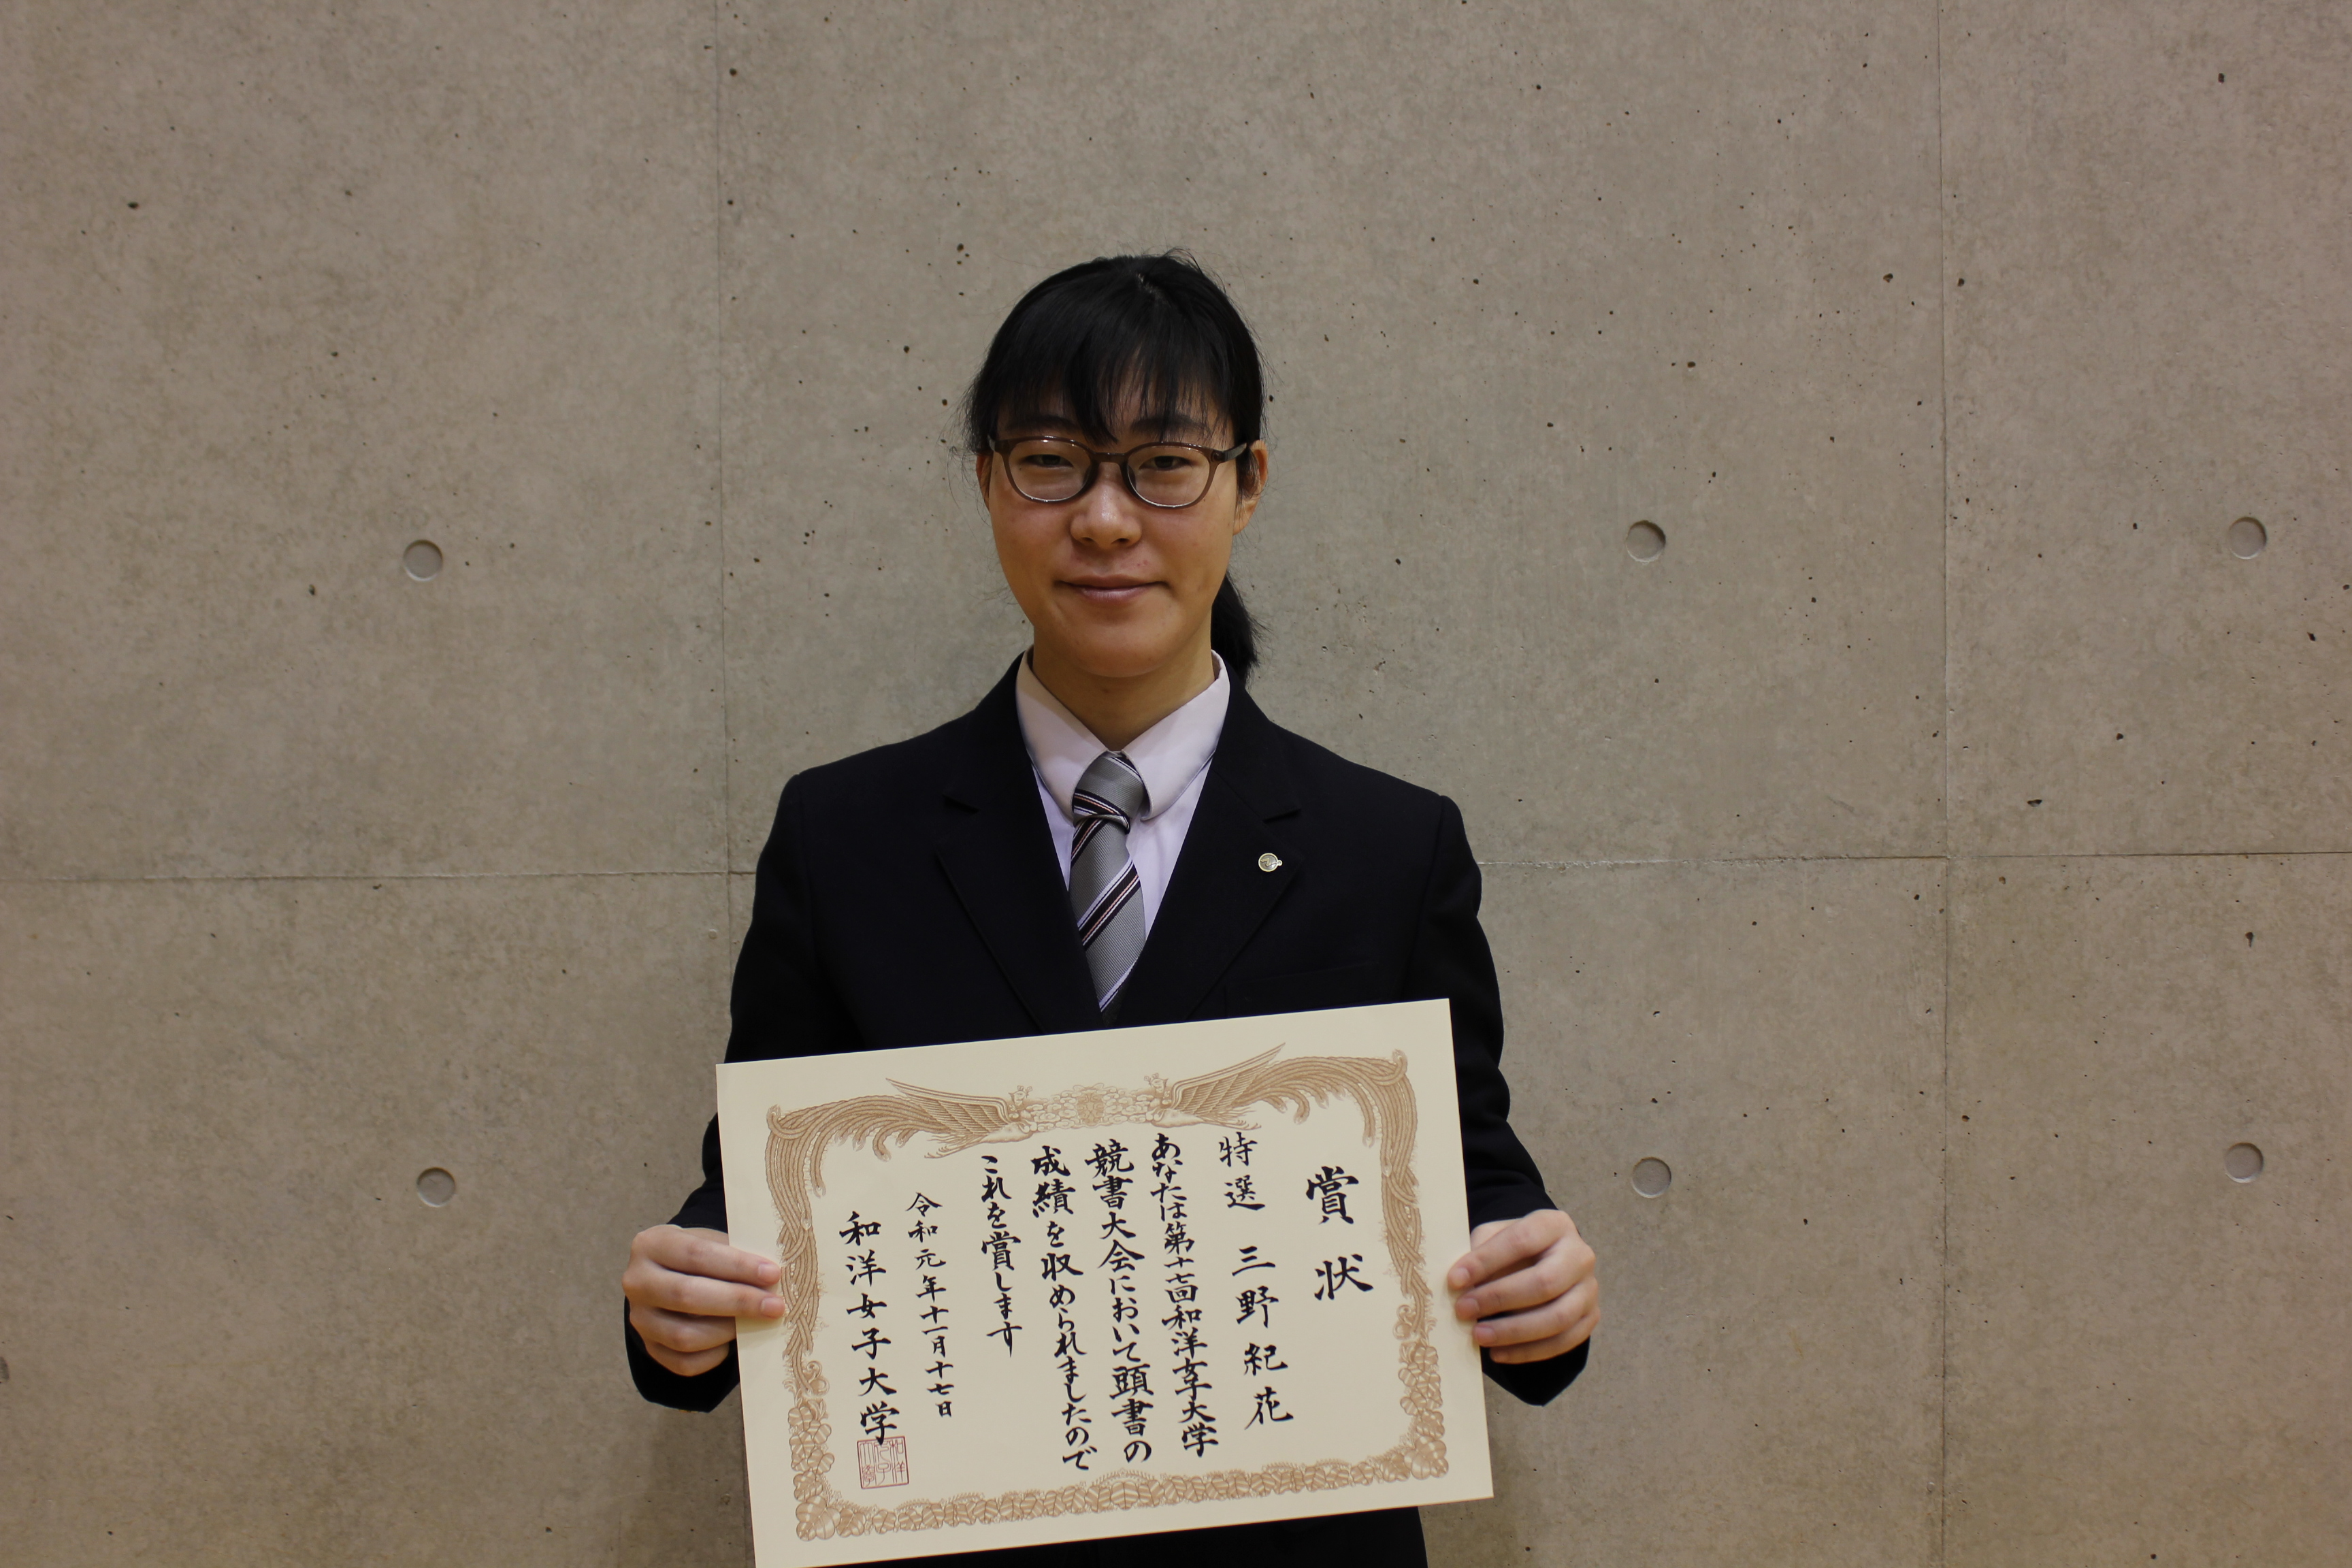 賞状
特選 三野紀花
あなたは第十七回和洋女子大学
競書大会において頭書の
成績を収められましたので
これを賞します
令和元年十一月十七日
和洋女子大学